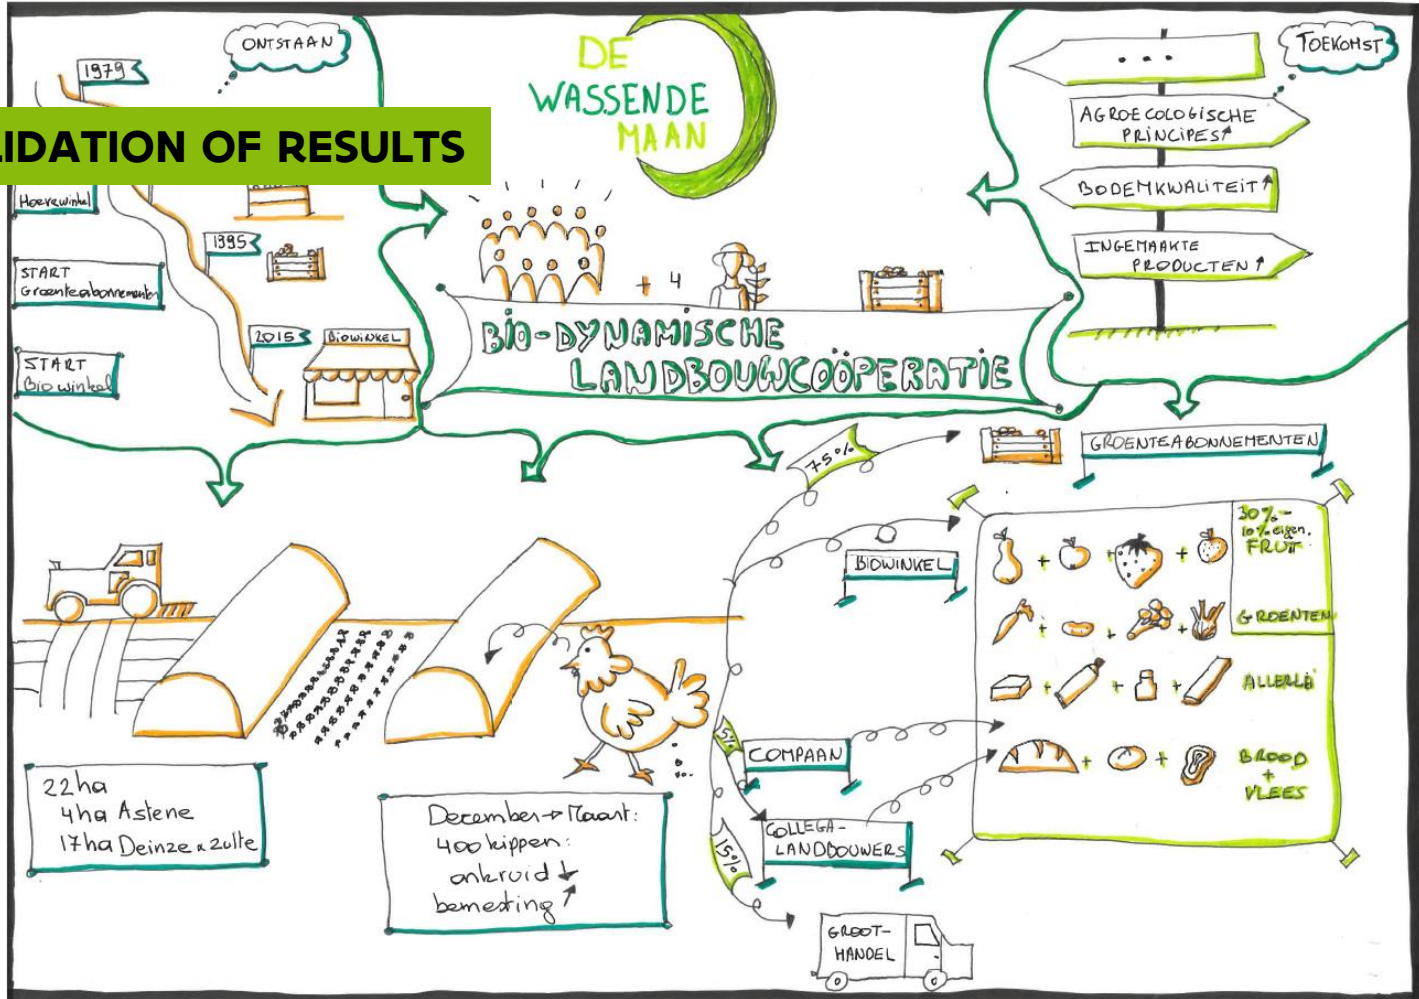 ONTSTAAN
1979
LIDATION OF RESULTS
Hoevewinkel
1995
START
Groenteabonnementen
2015
BIOWINKEL
START
Biowinkel
DE
WASSENDE
MAAN
+ 4
BIO-DYNAMISCHE
LANDBOUWCOÖPERATIE
TOEKOMST
...
AGROECOLOGISCHE
PRINCIPES↑
BODEMKWALITEIT↑
INGEMAAKTE
PRODUCTEN↑
22ha
4ha Astene
17ha Deinze & Zulte
December → Maart:
400 kippen:
onkruid ↓
bemesting ↑
75%
GROENTEABONNEMENTEN
BIOWINKEL
5%
COMPAAN
COLLEGA-
LANDBOUWERS
15%
GROOT-
HANDEL
30%-
10% eigen.
FRUIT
GROENTEN
ALLERLEI
BROOD
+
VLEES